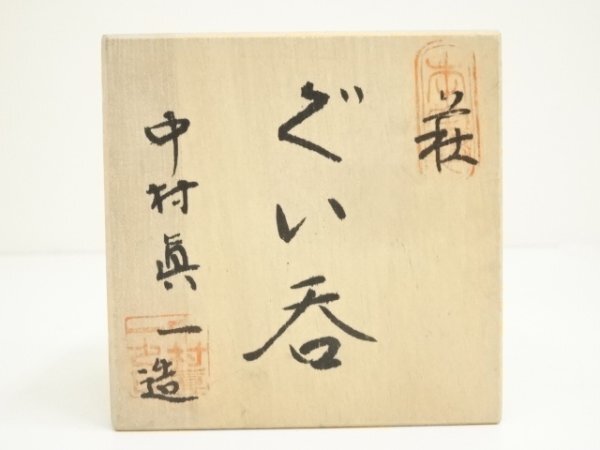 萩
ぐい呑
中村眞一造